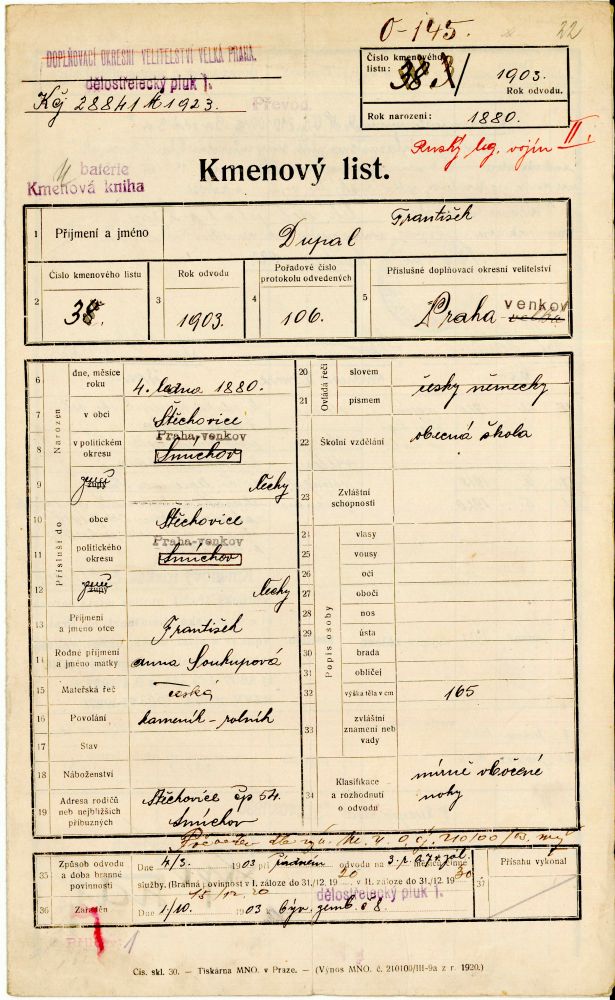 O-145.
22
DOPLŇOVACÍ OKRESNÍ VELITELSTVÍ VELKÁ PRAHA.
dělostřelecký pluk 1.
28841 1923.
Převod.
Číslo kmenového listu: 38 / 1903.
Rok odvodu.
Rok narození: 1880.
Ruský leg. vojín II.
4 baterie
Kmenová kniha
Kmenový list.
1 Příjmení a jméno Dupal František
Číslo kmenového listu Rok odvodu Pořadové číslo protokolu odvedených Příslušné doplňovací okresní velitelství
2 38. 3 1903. 4 106. 5 Praha venkov
6 Narozen dne, měsíce roku 4. ledna 1880.
7 v obci Štěchovice
8 v politickém okresu Praha-venkov Smíchov
9 župy Čechy
10 Přísluší do obce Štěchovice
11 politického okresu Praha-venkov Smíchov
12 župy Čechy
13 Příjmení a jméno otce František
14 Rodné příjmení a jméno matky Anna Soukupová
15 Mateřská řeč česká
16 Povolání kameník - rolník
17 Stav
18 Náboženství
19 Adresa rodičů neb nejbližších příbuzných Štěchovice čp 54. Smíchov
20 Ovládá řeči slovem česky německy
21 písmem
22 Školní vzdělání obecná škola
23 Zvláštní schopnosti
24 Popis osoby vlasy
25 vousy
26 oči
27 obočí
28 nos
29 ústa
30 brada
31 obličej
32 výška těla v cm 165
33 zvláštní znamení neb vady
34 Klasifikace a rozhodnutí o odvodu mírně vbočené nohy
35 Způsob odvodu a doba branné povinnosti
Dne 4/3. 1903 řádném odvodu na 3 měsíčníme
službu. (Branná povinnost v I. záloze do 31./12. 1920 v II. záloze do 31./12. 1930.
15/12. 20
dělostřelecký pluk 1.
36 Zařaděn Dne 1/10. 1903 býv. zemb. č 8.
37 Přísahu vykonal
1
Čís. skl. 30. — Tiskárna MNO. v Praze. — (Výnos MNO. č. 210100/III-9a z r. 1920.)